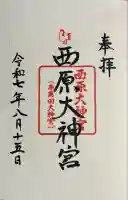 奉拝
西原大神宮
西原大神宮
令和七年八月十五日